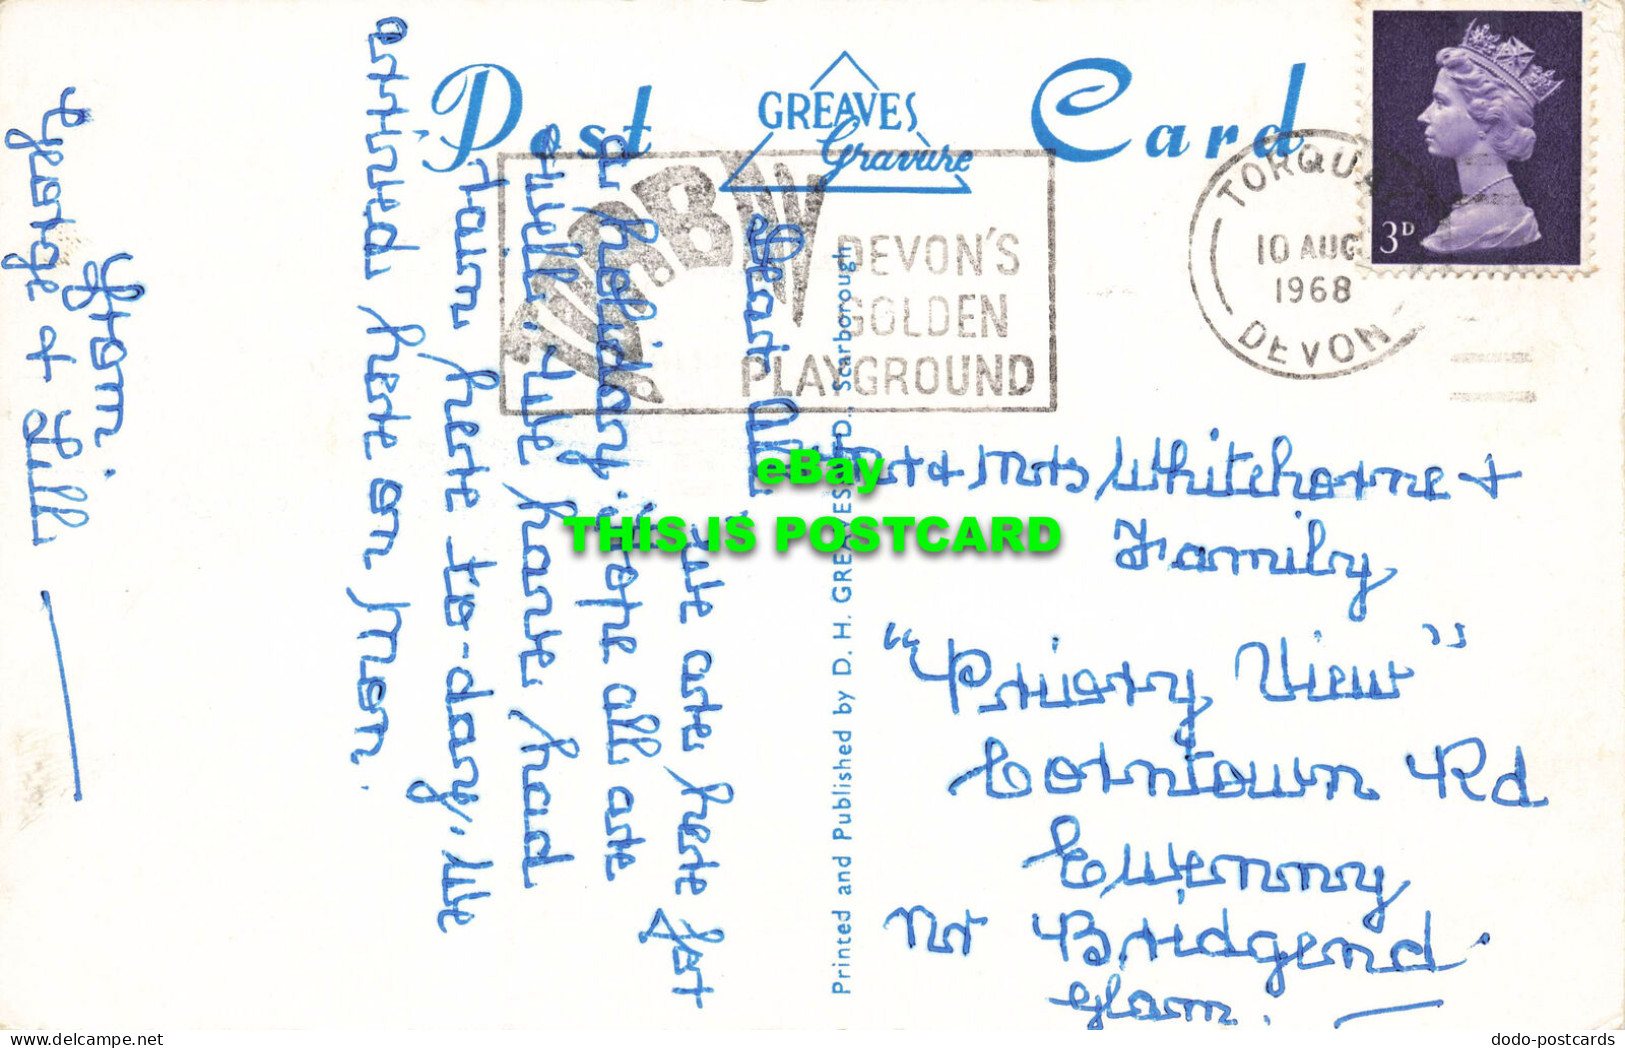 Post Card
GREAVES
Gravure
TORBAY
DEVON'S
GOLDEN
PLAYGROUND
TORQUAY
10 AUG
1968
DEVON
3D
Dear All
We are here for
a holiday. hope all are
well. We have had
rain here to-day. We
arrived here on Mon.
From.
George & Lill
Printed and Published by D. H. GREAVES LTD., Scarborough
Mr & Mrs Whitehorne &
Family
"Priory View"
Corntown Rd
Ewenny
Nr Bridgend.
Glam.
eBay
THIS IS POSTCARD
www.delcampe.net
dodo-postcards